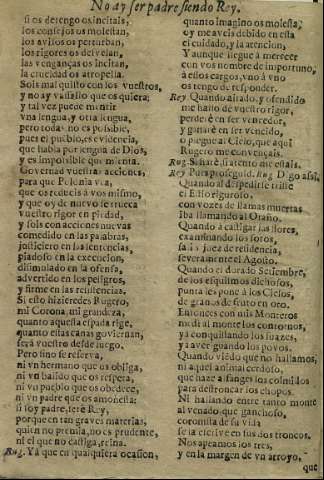 No ay ser padre siendo Rey.
si os derengo os incitais,
los consejos os molestan,
los avisos os perturban,
los rigores os deivelan,
las venganças os incitan,
la crueldad os atropella.
Sois mal quisto con los vuestros,
y no ay vassallo que os quiera;
y tal vez puede mentir
vna lengua, y otra lengua,
pero todas no es possible,
pues el pueblo, es evidencia,
que habla por lengua de Dios,
y es impossible que mienta.
Governad vuestras acciones,
para que Polonia vea,
que os reducis à vos mismo,
y que oy de nuevo se trueca
vuestro rigor en piedad,
y sois con acciones nuevas
comedido en las palabras,
justiciero en las sentencias,
piadoso en la execucion,
dissimulado en la ofensa,
advertido en los peligros,
y firme en las resistencias.
Si esto hizieredes Rugero,
mi Corona, mi grandeza,
quanto aquesta espada rige,
quanto estas canas goviernan,
serà vuestro desde luego.
Pero sino se reserva,
ni vn hermano que os obliga,
ni vn balido que os respeta,
ni vn pueblo que os obedece,
ni vn padre que os amonesta:
si soy padre, serè Rey,
porque en tan graves materias,
quien no premia, no es prudente,
ni el que no castiga, reina.
Rug. Ya que en qualquiera ocasion,
quanto imagino os molesta,
oy me aveis debido en esta
el cuidado, y la atencion,
Y aunque llegue à merecer
con vos nombre de importuno,
à essos cargos, vno à vno
os tengo de responder.
Rey. Quando airado, y ofendido
me hallo de vuestro rigor,
perderè en ser vencedor,
y ganarè en ser vencido,
ò plegue al Cielo, que aqui
Rugero me convençais.
Rug. Si harè si atento me estais.
Rey Pues proseguid. Rug. Digo assi,
Quando al despedirse triste
el Estio riguroso,
con vozes de llamas muertas
Iba llamando al Otoño.
Quando à castigar las flores,
examinando los soros,
salió juez de residencia,
severamente el Agosto.
Quando el dorado Setiembre,
de los esquilmos dichosos,
puntales pone à los Cielos,
de granos de fruto en oro.
Entonces con mis Monteros
medì al monte los contornos,
ya conquistando los sauzes,
ya averiguando los povos.
Quando viendo que no hallamos,
ni aquel animal cerdoso,
que haze alfanges los colmillos
para destroncar los chopos.
Ni hallando entre tanto monte
al venado, que ganchoso,
coronista de su vida
se la escrive en sus dos troncos.
Nos apeamos los tres,
y en la margen de vn arroyo,
que